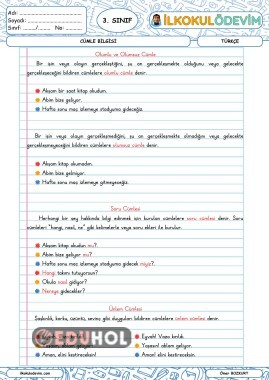 Adı:
Soyadı:
Sınıf: ....../...... No:
3. SINIF
İLKOKULÖDEVİM
CÜMLE BİLGİSİ
TÜRKÇE
Olumlu ve Olumsuz Cümle
Bir işin veya olayın gerçekleştiğini, şu an gerçekleşmekte olduğunu veya gelecekte
gerçekleşeceğini bildiren cümlelere olumlu cümle denir.
Akşam bir saat kitap okudum.
Abim bize geliyor.
Hafta sonu maç izlemeye stadyuma gideceğiz.
Bir işin veya olayın gerçekleşmediğini, şu an gerçekleşmekte olmadığını veya gelecekte
gerçekleşmeyeceğini bildiren cümlelere olumsuz cümle denir.
Akşam kitap okumadım.
Abim bize gelmiyor.
Hafta sonu maç izlemeye gitmeyeceğiz.
Soru Cümlesi
Herhangi bir şey hakkında bilgi edinmek için kurulan cümlelere soru cümlesi denir. Soru
cümleleri "hangi, nasıl, ne" gibi kelimelerle veya soru ekleri ile kurulur.
Akşam kitap okudun mu?
Abim bize geliyor mu?
Hafta sonu maç izlemeye stadyuma gidecek miyiz?
Hangi takımı tutuyorsun?
Okula nasıl gidiyor?
Nereye gidecekler?
Ünlem Cümlesi
Şaşkınlık, korku, üzüntü, sevinç gibi duyguları bildiren cümlelere ünlem cümlesi denir.
EDUHOL
Eyvah! Vazo kırıldı.
Yaşasın! ablam geliyor.
Aman, elini kesmeyesin!
ilkokulodevim.com
Ömer BOZKURT